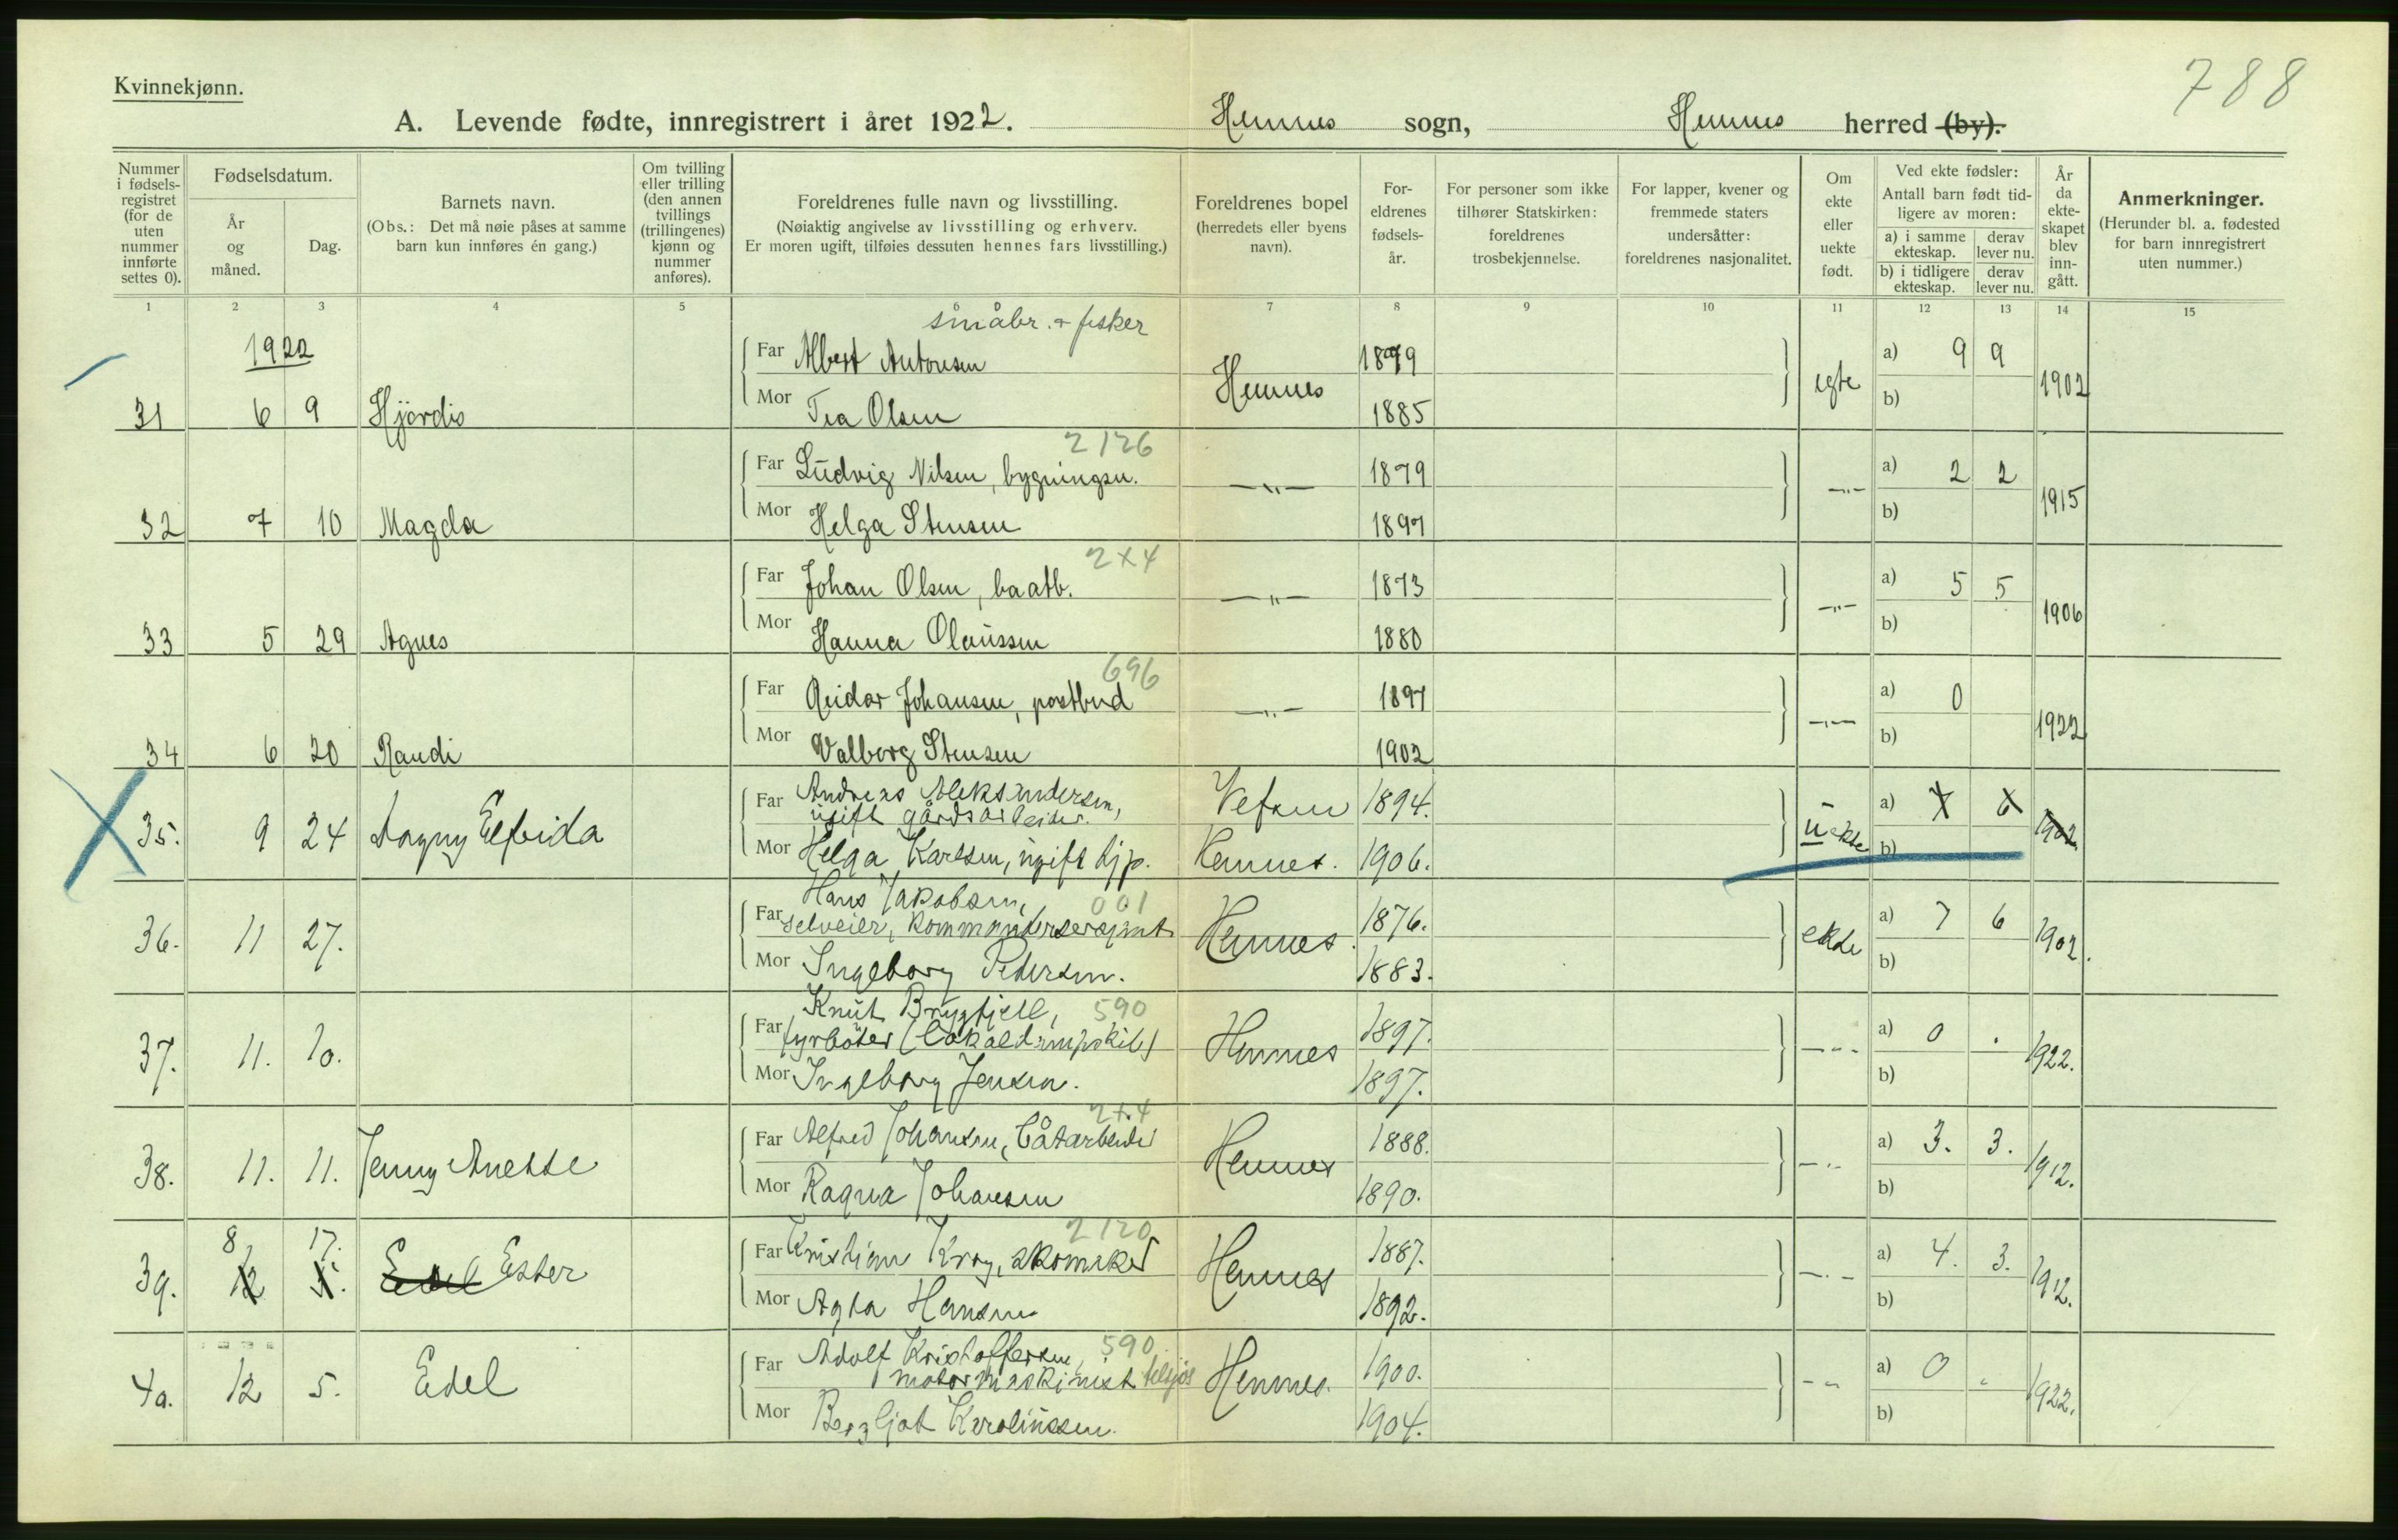 788
Kvinnekjønn.
A. Levende fødte, innregistrert i året 1922. Hemnes sogn, Hemnes herred (by).
Nummer i fødsels-registret (for de uten nummer innførte settes 0).
Fødselsdatum.
År og måned.
Dag.
Barnets navn.
(Obs.: Det må nøie påses at samme barn kun innføres én gang.)
Om tvilling eller trilling (den annen tvillings (trillingenes) kjønn og nummer anføres).
Foreldrenes fulle navn og livsstilling.
(Nøiaktig angivelse av livsstilling og erhverv. Er moren ugift, tilføies dessuten hennes fars livsstilling.)
Foreldrenes bopel (herredets eller byens navn).
For-eldrenes fødsels-år.
For personer som ikke tilhører Statskirken: foreldrenes trosbekjennelse.
For lapper, kvener og fremmede staters undersåtter: foreldrenes nasjonalitet.
Om ekte eller uekte født.
Ved ekte fødsler: Antall barn født tid-ligere av moren:
a) i samme ekteskap. derav lever nu.
b) i tidligere ekteskap. derav lever nu.
År da ekte-skapet blev inn-gått.
Anmerkninger.
(Herunder bl. a. fødested for barn innregistrert uten nummer.)
1 2 3 4 5 6 7 8 9 10 11 12 13 14 15
1922
småbr. + fisker
Far Albert Antonsen 1879 a) 9 9
31 6 9 Hjördis Mor Tea Olsen Hemnes 1885 egte b) 1902
2126
Far Ludvig Nilsen, bygningsn. 1879 a) 2 2
32 7 10 Magda Mor Helga Stensen —"— 1897 —"— b) 1915
2x4
Far Johan Olsen, baatb. 1873 a) 5 5
33 5 29 Agnes Mor Hanna Olaussen —"— 1880 —"— b) 1906
696
Far Reidar Johansen, postbud 1897 a) 0
34 6 20 Randi Mor Valborg Stensen —"— 1902 —"— b) 1922
Far Andreas Aleksandersen, Vefsen 1894. a)
ugift gårdsarbeider.
35. 9 24 Dagny Elfrida Mor Helga Karlsen, ugift hjp. Hemnes. 1906. uekte b) 1902.
Hans Jakobsen, 001
Far selveier, kommandersersjant 1876. a) 7 6
36. 11 27. Mor Ingeborg Pedersen. Hemnes. 1883. ekte b) 1902.
Knut Brygfjell, 590
Far fyrbøter (lokaldampskib) 1897. a) 0 .
37. 11. 10. Mor Ingeborg Jensen. Hemnes 1897. —"— b) 1922.
2x4
Far Alfred Johansen, båtarbeider 1888. a) 3. 3.
38. 11. 11. Jenny Anette Mor Ragna Johansen Hemnes 1890. —"— b) 1912.
2120
8 17. Far Kristian Krog, skomaker 1887. a) 4. 3.
39. 12 5. Edel Ester Mor Agta Hansen Hemnes 1892. —"— b) 1912.
Far Adolf Kristoffersen, 590 1900. a) 0 .
motormaskinist
40. 12 5. Edel Mor Bergljot Karolinssen. Hemnes. 1904. —"— b) 1922.